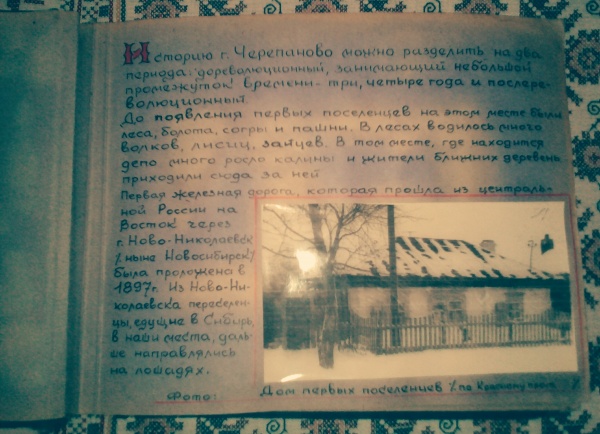 Историю г. Черепаново можно разделить на два
периода: дореволюционный, занимающий небольшой
промежуток времени - три, четыре года и послере-
волюционный.
До появления первых поселенцев на этом месте были
леса, болота, согры и пашни. В лесах водилось много
волков, лисиц, зайцев. В том месте, где находится
депо много росло калины и жители ближних деревень
приходили сюда за ней
Первая железная дорога, которая прошла из централь-
ной России на
Восток через
г. Ново-Николаевск
/ныне Новосибирск/
была проложена в
1897г. Из Ново-Ни-
колаевска переселен-
цы, едущие в Сибирь,
в наши места, даль-
ше направлялись
на лошадях.
Фото: Дом первых поселенцев /по